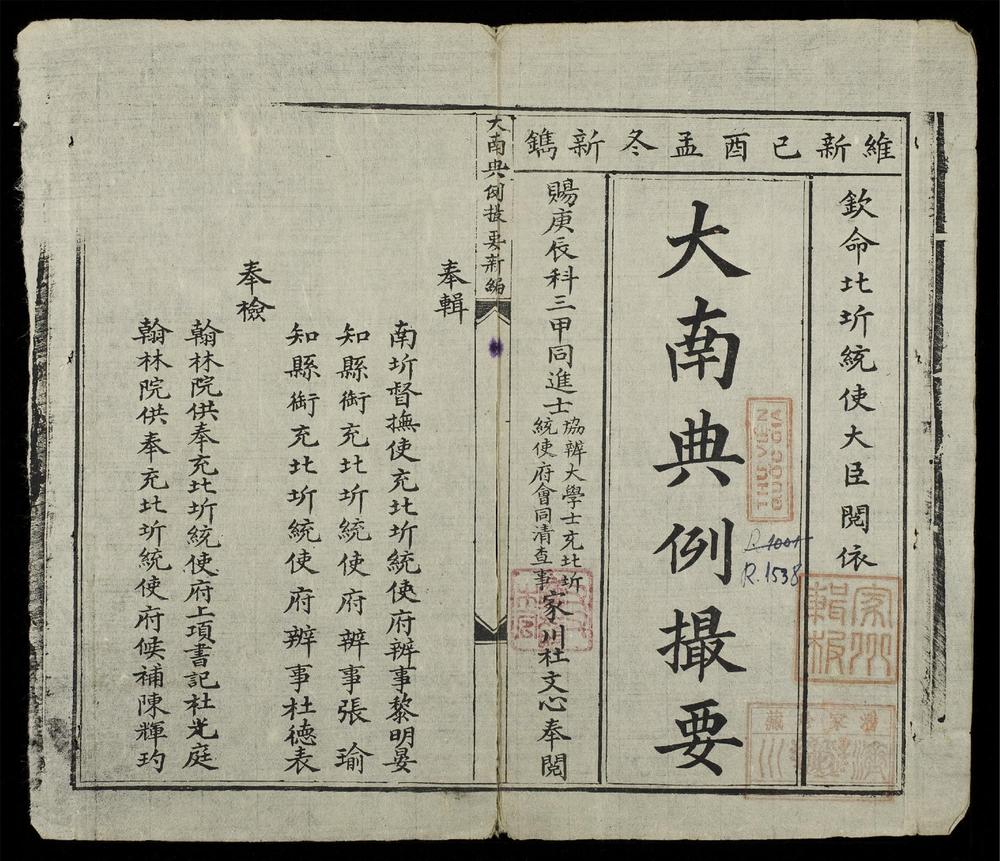 維新己酉孟冬新鐫
欽命北圻統使大臣閱依
大南典例撮要
賜庚辰科三甲同進士協辦大學士充北圻統使府會同清查事家川杜文心奉閱
大南典例撮要新編
奉輯
南圻督撫使充北圻統使府辦事黎明晏
知縣銜充北圻統使府辦事張瑜
知縣銜充北圻統使府辦事杜德表
奉檢
翰林院供奉充北圻統使府上項書記杜光庭
翰林院供奉充北圻統使府候補陳輝玓
THƯ VIỆN
QUỐC GIA
R.1001
R.1538